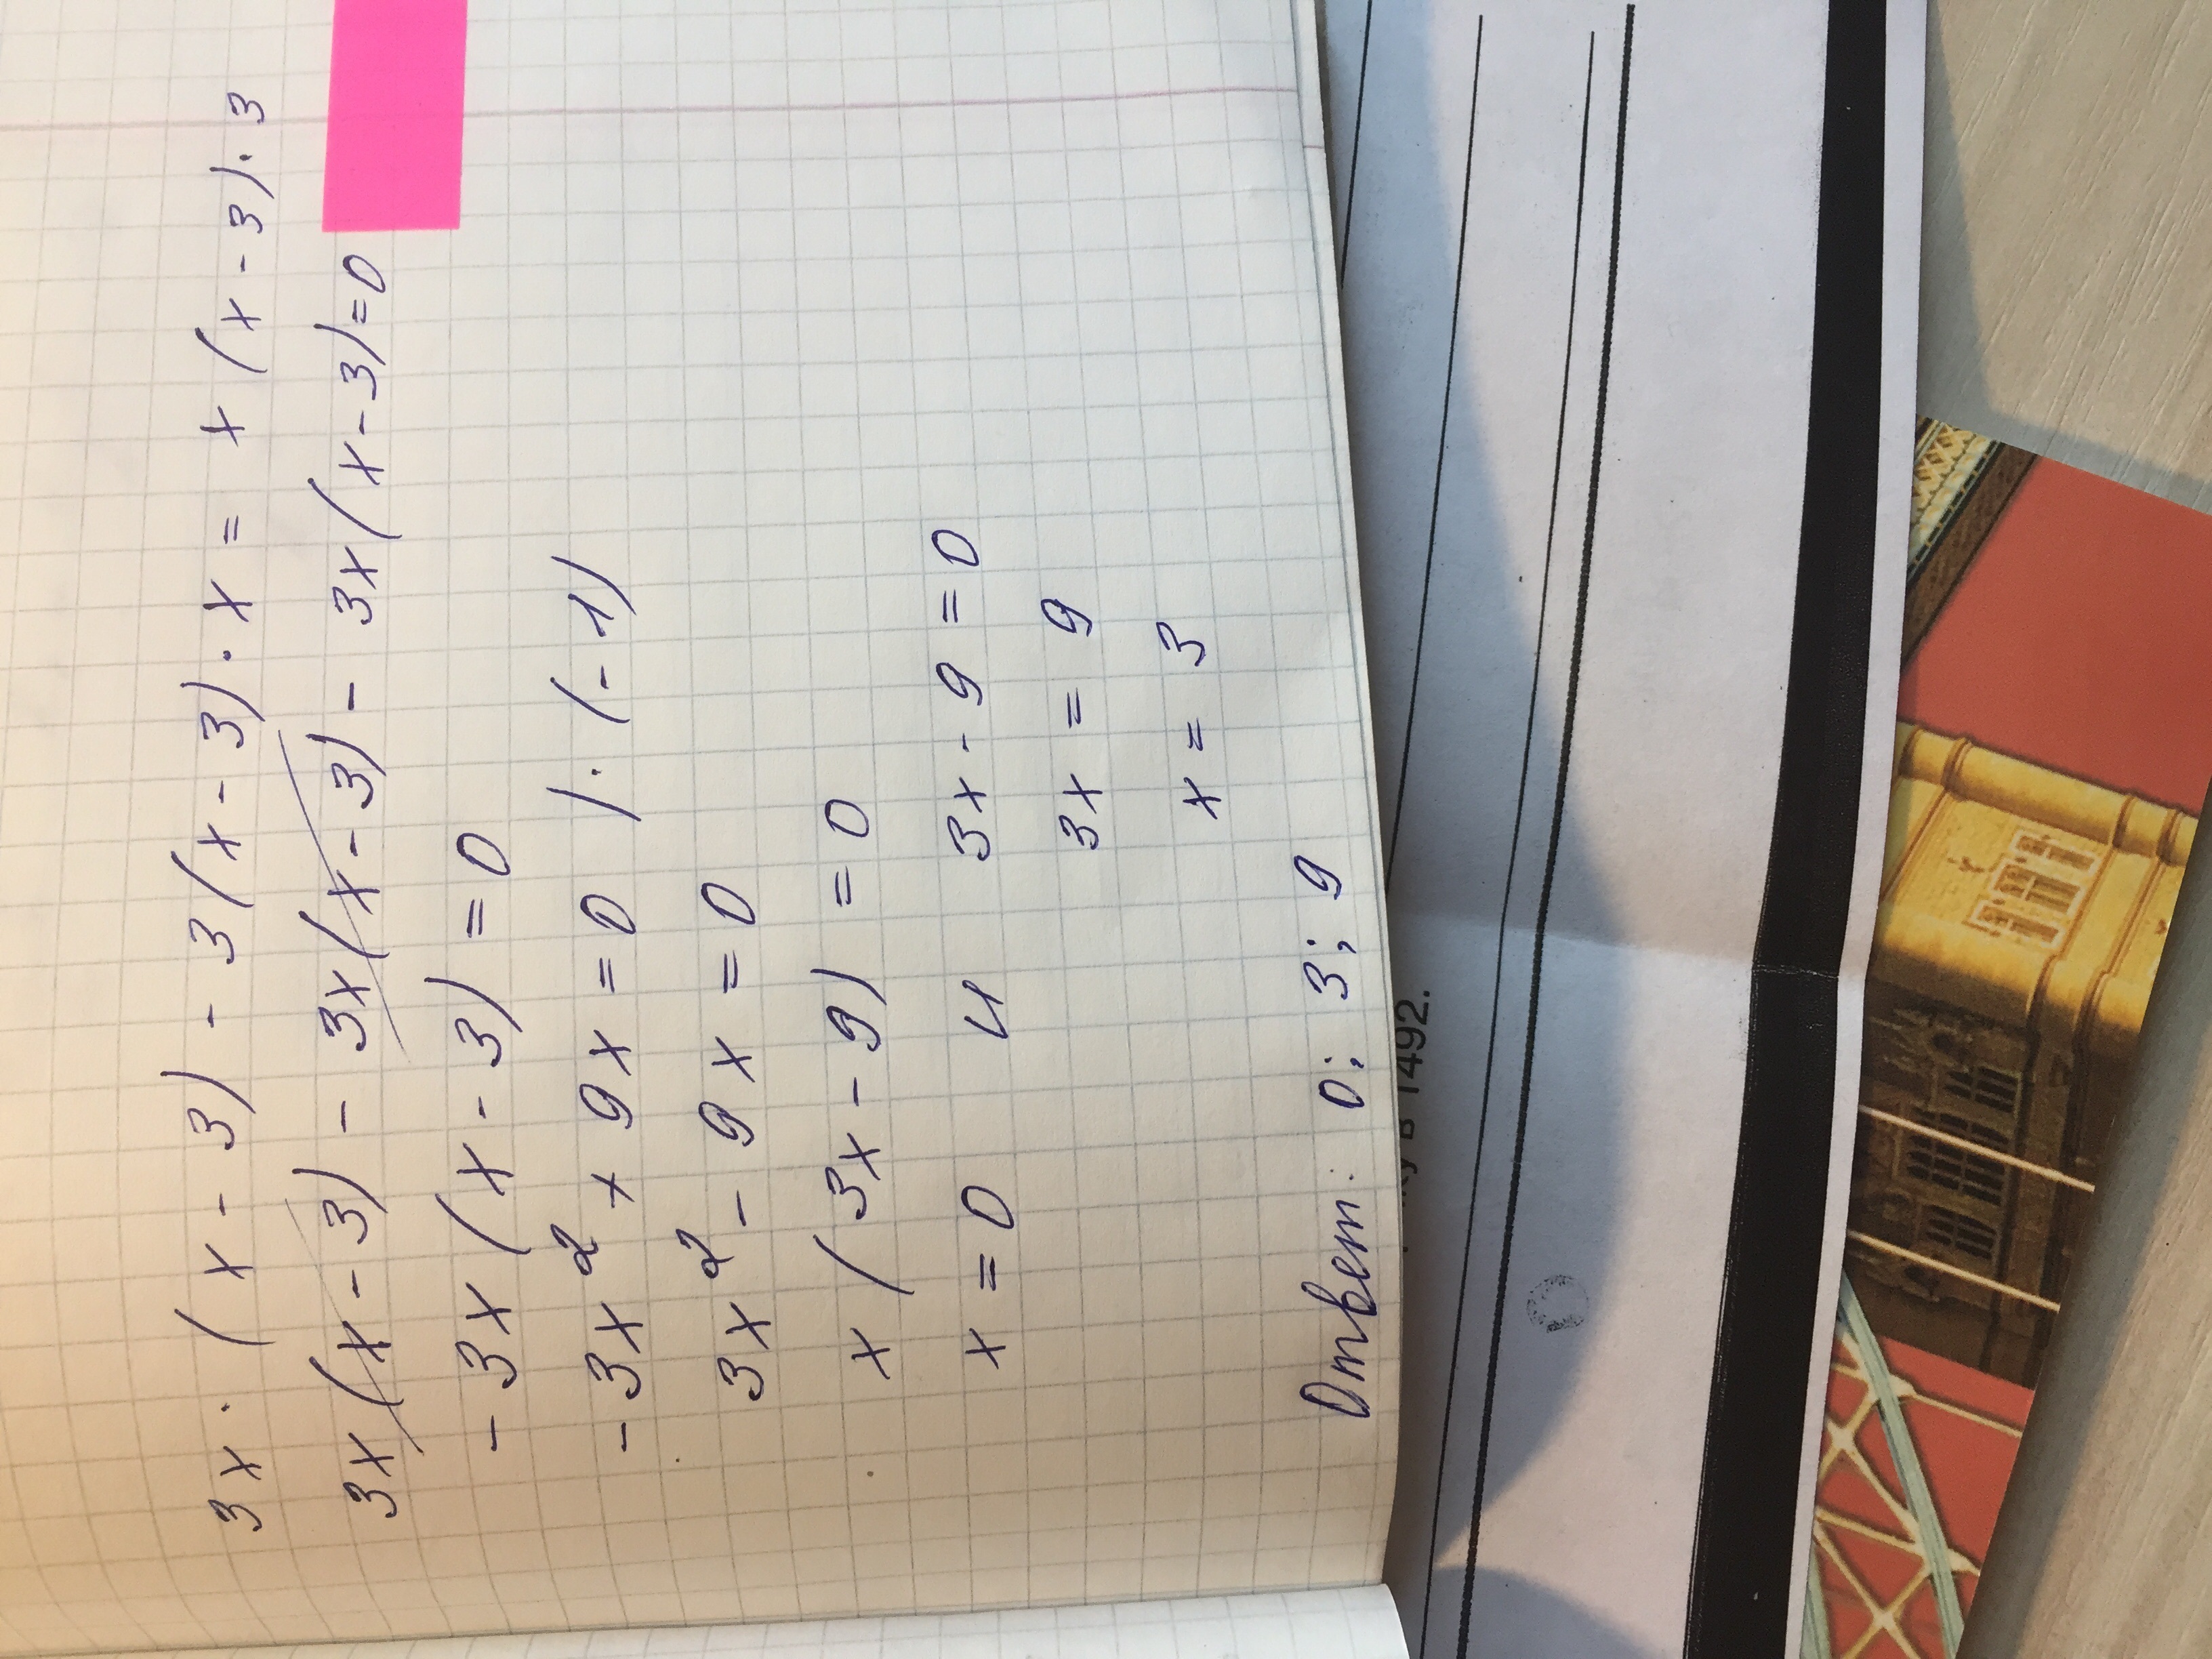 3x · (x - 3) - 3(x - 3) · x = x (x - 3) · 3
3x(x - 3) - 3x(x - 3) - 3x(x - 3) = 0
- 3x (x - 3) = 0
- 3x² + 9x = 0 / · (-1)
3x² - 9x = 0
x (3x - 9) = 0
x = 0 и 3x - 9 = 0
3x = 9
x = 3
Ответ: 0; 3; 9
в 1492.